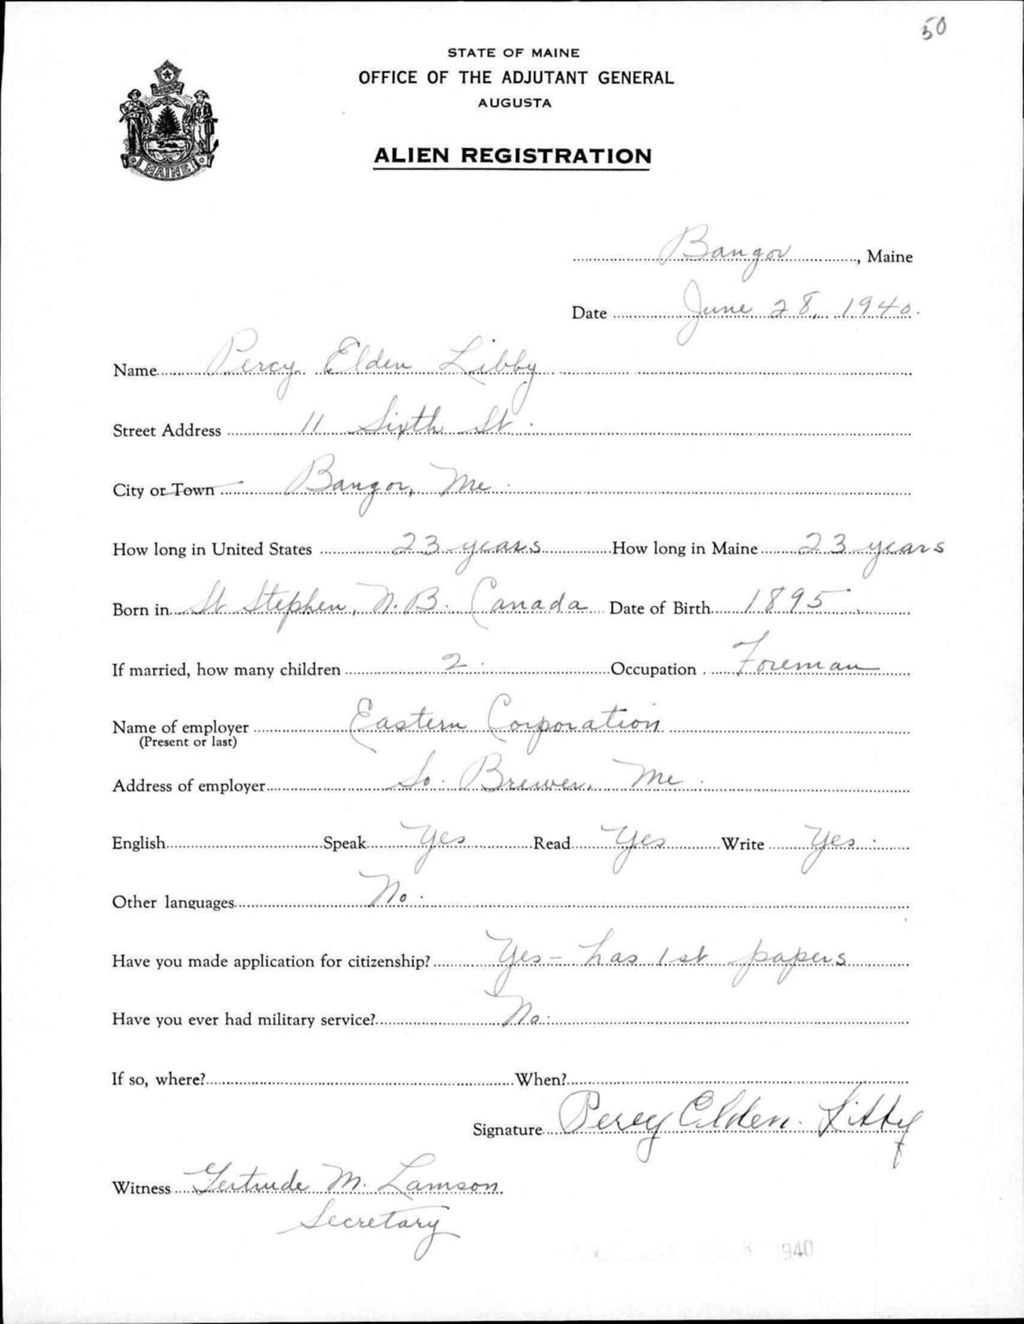 50
STATE OF MAINE
OFFICE OF THE ADJUTANT GENERAL
AUGUSTA
MAINE
ALIEN REGISTRATION
Bangor, Maine
Date June 28, 1940.
Name Percy Elden Libby
Street Address 11 Sixth St.
City or Town Bangor, Me.
How long in United States 23 years How long in Maine 23 years
Born in St Stephen, N.B. Canada Date of Birth 1895.
If married, how many children 2. Occupation Foreman
Name of employer Eastern Corporation
(Present or last)
Address of employer So. Brewer, Me.
English Speak Yes Read Yes Write Yes.
Other languages No.
Have you made application for citizenship? Yes - has 1st papers
Have you ever had military service? No.
If so, where? When?
Signature Percy Elden Libby
Witness Gertrude M. Lamson
Secretary
1940